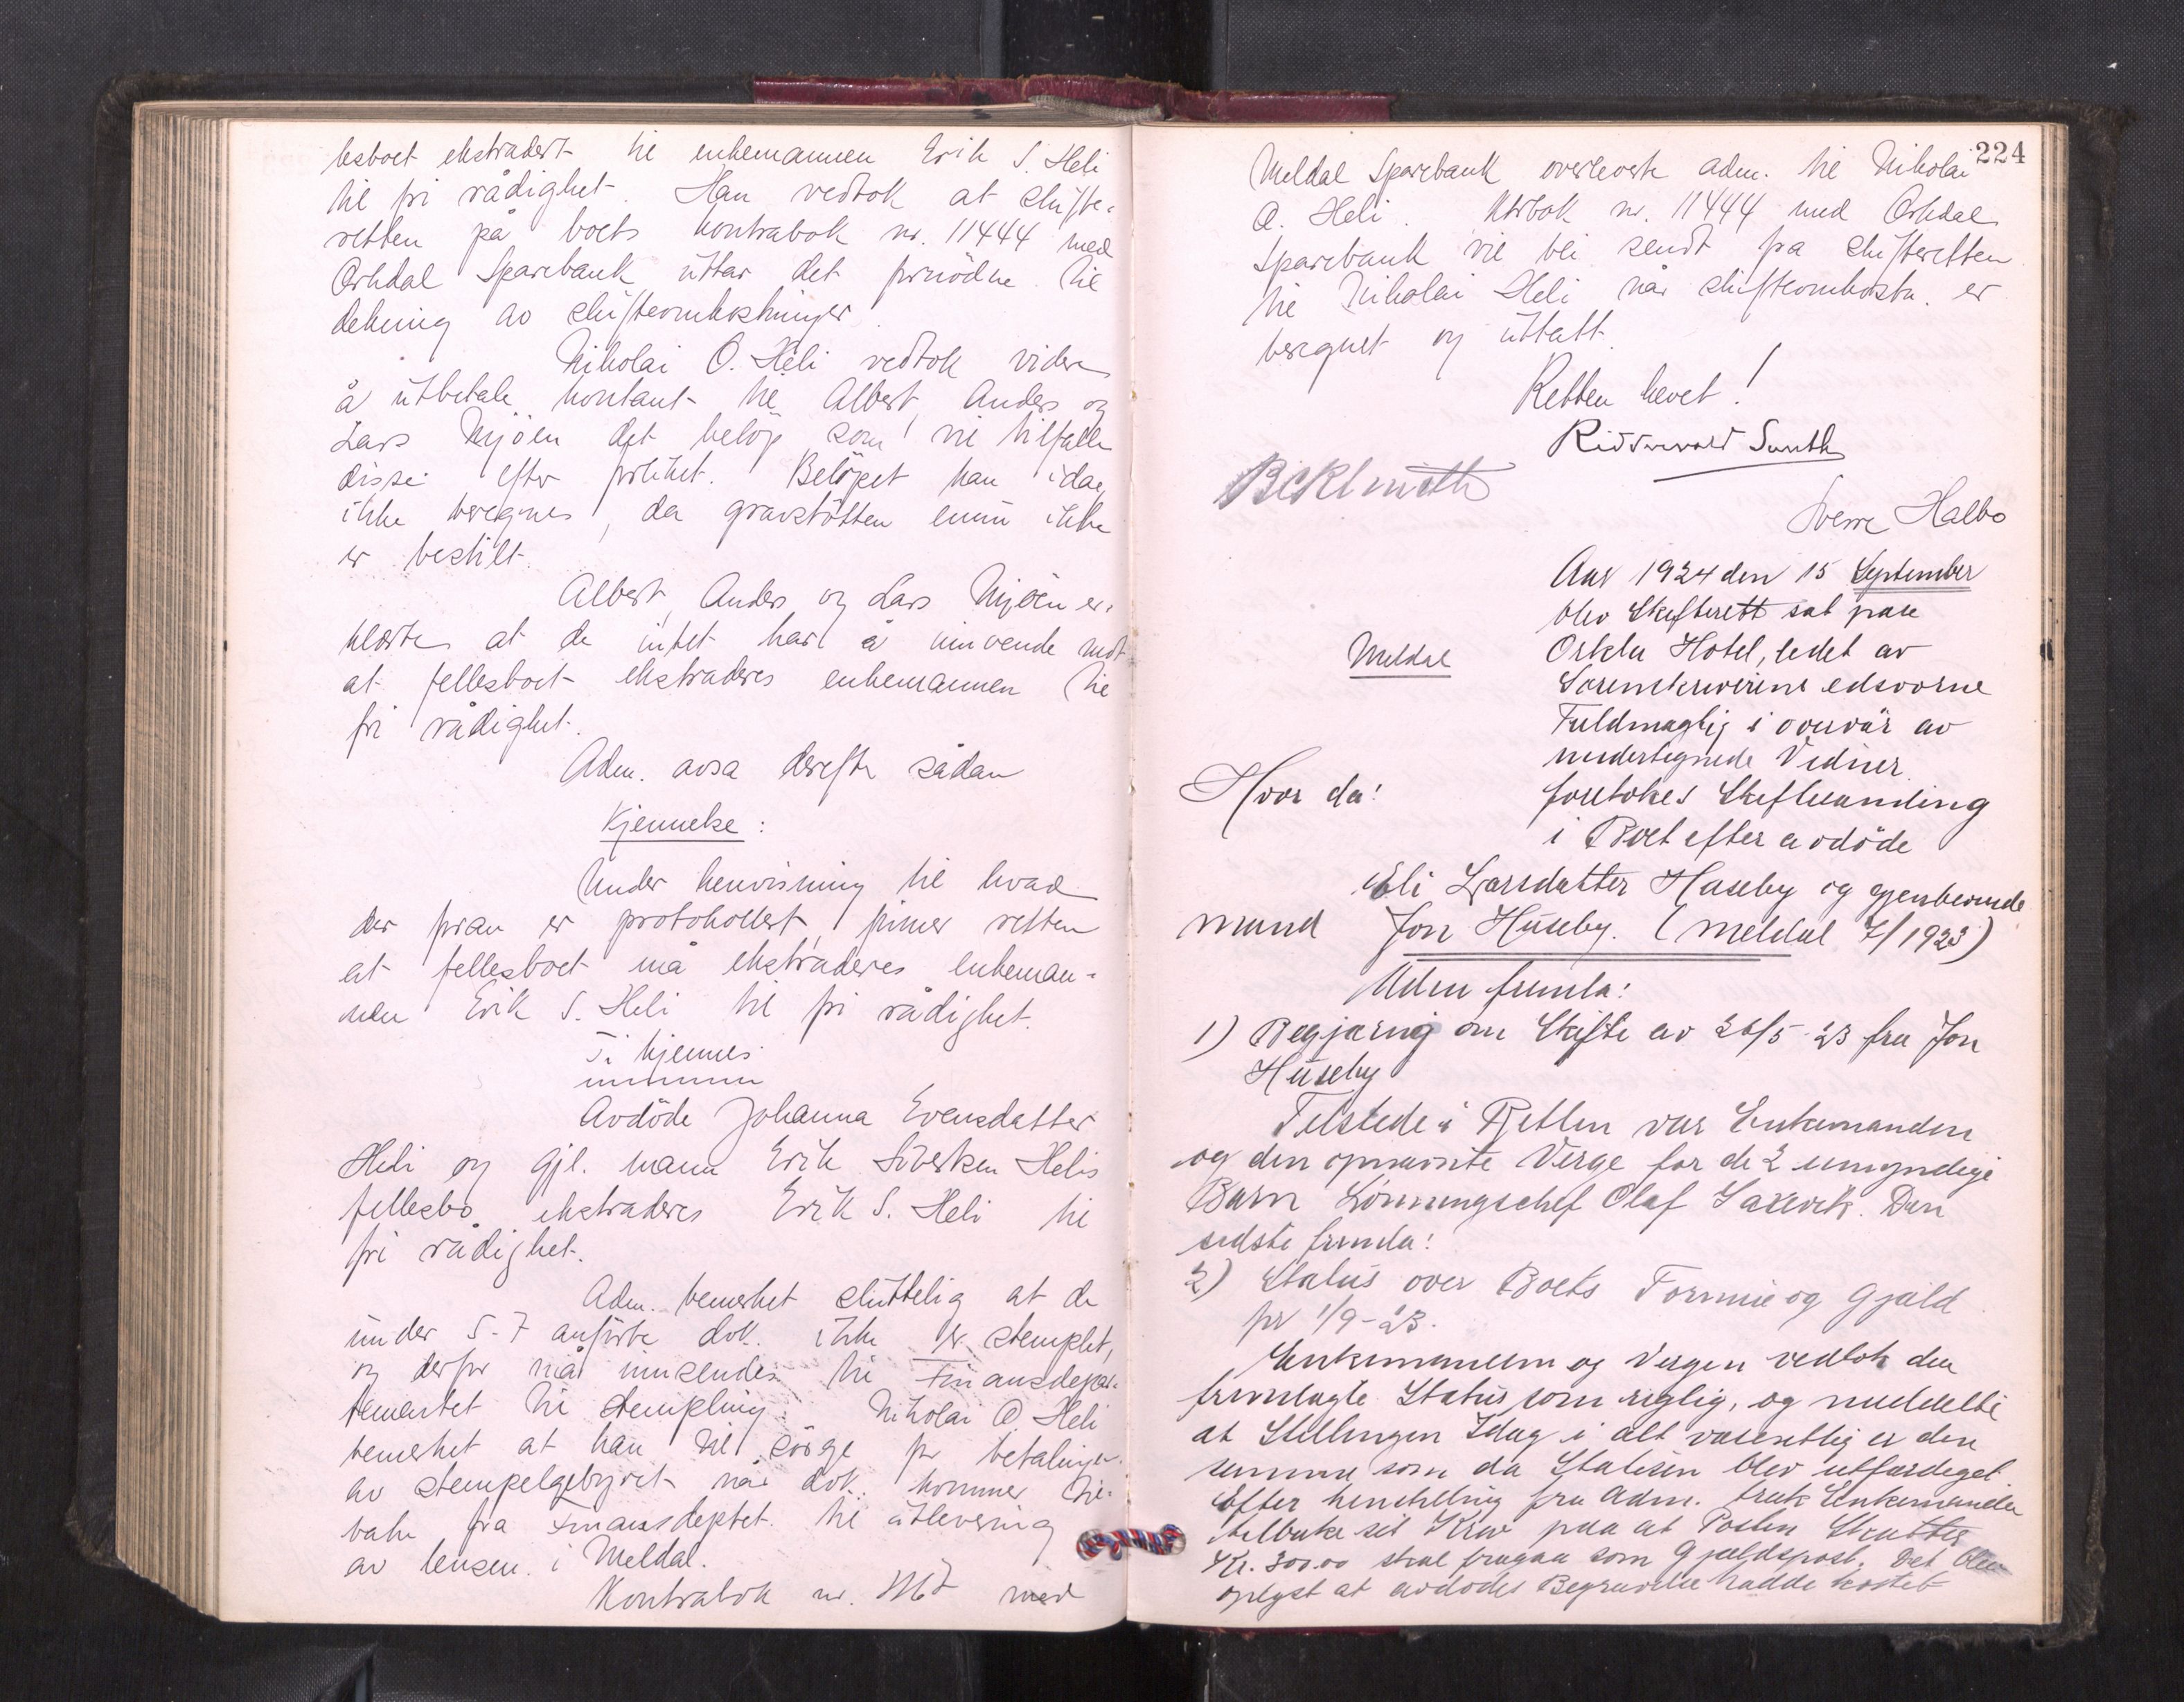 lesboet ekstradert til enkemannen Erik S. Heli
til fri rådighet. Han vedtok at skifte-
retten på boets kontrabok nr. 11444 med
Orkdal Sparebank uttar det fornødne til
dekning av skifteomkostninger.
Nikolai O. Heli vedtok videre
å utbetale kontant til Albert, Anders og
Lars Mjøen det beløp som vil tilfalle
disse efter forliket. Beløpet kan idag
ikke beregnes, da gravstøtten ennu ikke
er bestilt.
Albert, Anders og Lars Mjøen er-
klærte at de intet har å innvende mot
at fellesboet ekstraderes enkemannen til
fri rådighet.
Adm. avsa derefter sådan
Kjennelse:
Under henvisning til hvad
der foran er protokollert, finner retten
at fellesboet må ekstraderes enkeman-
nen Erik S. Heli til fri rådighet.
Ti kjennes
Avdøde Johanna Evensdatter
Heli og gjl. mann Erik Siversen Helis
fellesbo ekstraderes Erik S. Heli til
fri rådighet.
Adm. bemerket sluttelig at de
under 5-7 anførte dok. ikke er stemplet,
og derfor må innsendes til Finansdepar-
tementet til stempling. Nikolai O. Heli
bemerket at han vil sørge for betalingen
av stempelgebyret når dok. kommer til-
bake fra Finansdeptet. til utlevering
av lensm. i Meldal.
Kontrabok nr. med
224
Meldal Sparebank overleverte adm. til Nikolai
O. Heli. Ktrbok nr. 11444 med Orkdal
Sparebank vil bli sendt fra skifteretten
til Nikolai Heli når skifteomkostn. er
beregnet og uttatt.
Retten hevet!
Sverre Halbo
Aar 1924 den 15 September
blev Skifterett sat paa
Meldal
Orkla Hotel, ledet av
Sorenskriverens edsvorne
Fuldmægtig i overvær av
undertegnede Vidner.
Hvor da:
foretokes Skiftesamling
i Boet efter avdøde
Eli Larsdatter Huseby og gjenlevende
mand Jon Huseby. (Meldal 7/1923)
Adm fremla:
1) Begjæring om Skifte av 26/5-23 fra Jon
Huseby
Tilstede i Retten var Enkemanden
og den opnævnte Verge for de 2 umyndige
Barn Lønningschef Olaf Saxevik. Den
sidste fremla:
2) Status over Boets Formue og Gjæld
pr 1/9-23.
Enkemanden og Vergen vedtok den
fremlagte Status som rigtig, og meddelte
at Stillingen Idag i alt væsentlig er den
samme som da Statusen blev utfærdiget
Efter henstilling fra Adm. trak Enkemanden
tilbake sit Krav paa at Posten Skatter
Kr. 300.00 skal fragaa som Gjældspost. Det blev
oplyst at avdødes Begravelse hadde kostet